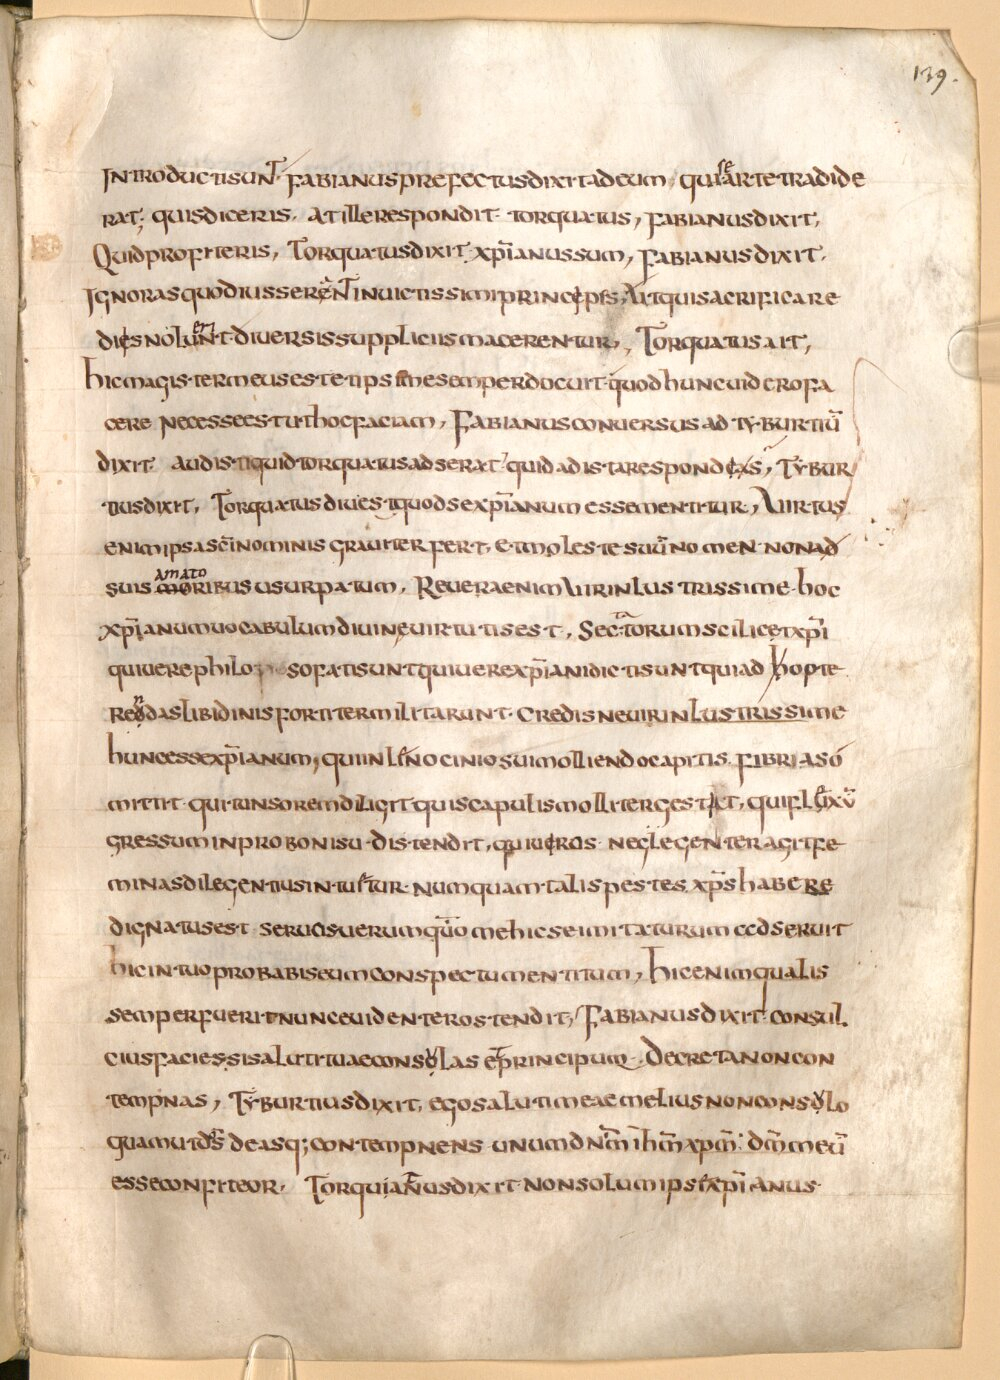 139.
Introductisunt fabianusprefectusdixitadeum quisearte tradide
rat; quisdiceris. atillerespondit torquatus, fabianusdixit,
Quidprofiteris, Torquatusdixit xp̄ianussum, fabianusdixit.
Ignorasquodiusserunt invictissimiprincepes, Utquisacrificare
diesnoluerint diversissuppliciis macerentur, Torquatusait,
hicmagistermeusesteipsimesemperdocuit quodhuncuiderofa
cere necesseestuthocfaciam, Fabianusconuersus ad tyburtiū
dixit audistiquidtorquatusadserat quidadistarespondes, Tybur
tiusdixit, Torquatusdiuestquodsexp̄ianumessementitur, Uirtus
enimipsasc̄inominis grauiterfert, etmolestesuūnomen nonad
suis amatoribususurpatum, Reueraenimuirinlustrissime hoc
xp̄ianumuocabulumdiuineuirtutisest, Sectatorumscilicetxp̄i
quiuerephilosofatisuntquiuerexp̄ianidictisuntquiad hopte
rendaslibidinisfortitermilitarunt credisneuirinlustrissime
huncessexp̄ianum, quiinlenociniosuimolliendocapitis fibriasó
mittit quitunsoremdiligitquiscapulismollitergestat, quiflexū
gressuminprobonisudistendit, quiuiros neglegenteragitfe
minasdilegentiusintuitur numquamtalispestes xp̄shabere
dignatusest seruosuerumquomehicseimitaturum ccdseruit
hicintuoprobabiseumconspectumentitum, hicenimqualis
semperfueritnunceuidenterostendit, Fabianusdixit consul
ciusfaciessisalutituaeconsolas etprincipum Decretanoncon
tempnas, Tyburtiusdixit, egosalutimeaemeliusnonconsolo
quamutdōsdeasq;contempnens unumdn̄m ih̄m xp̄m dm̄ meū
esseconfiteor, Torquianusdixit nonsolumipsexp̄ianus